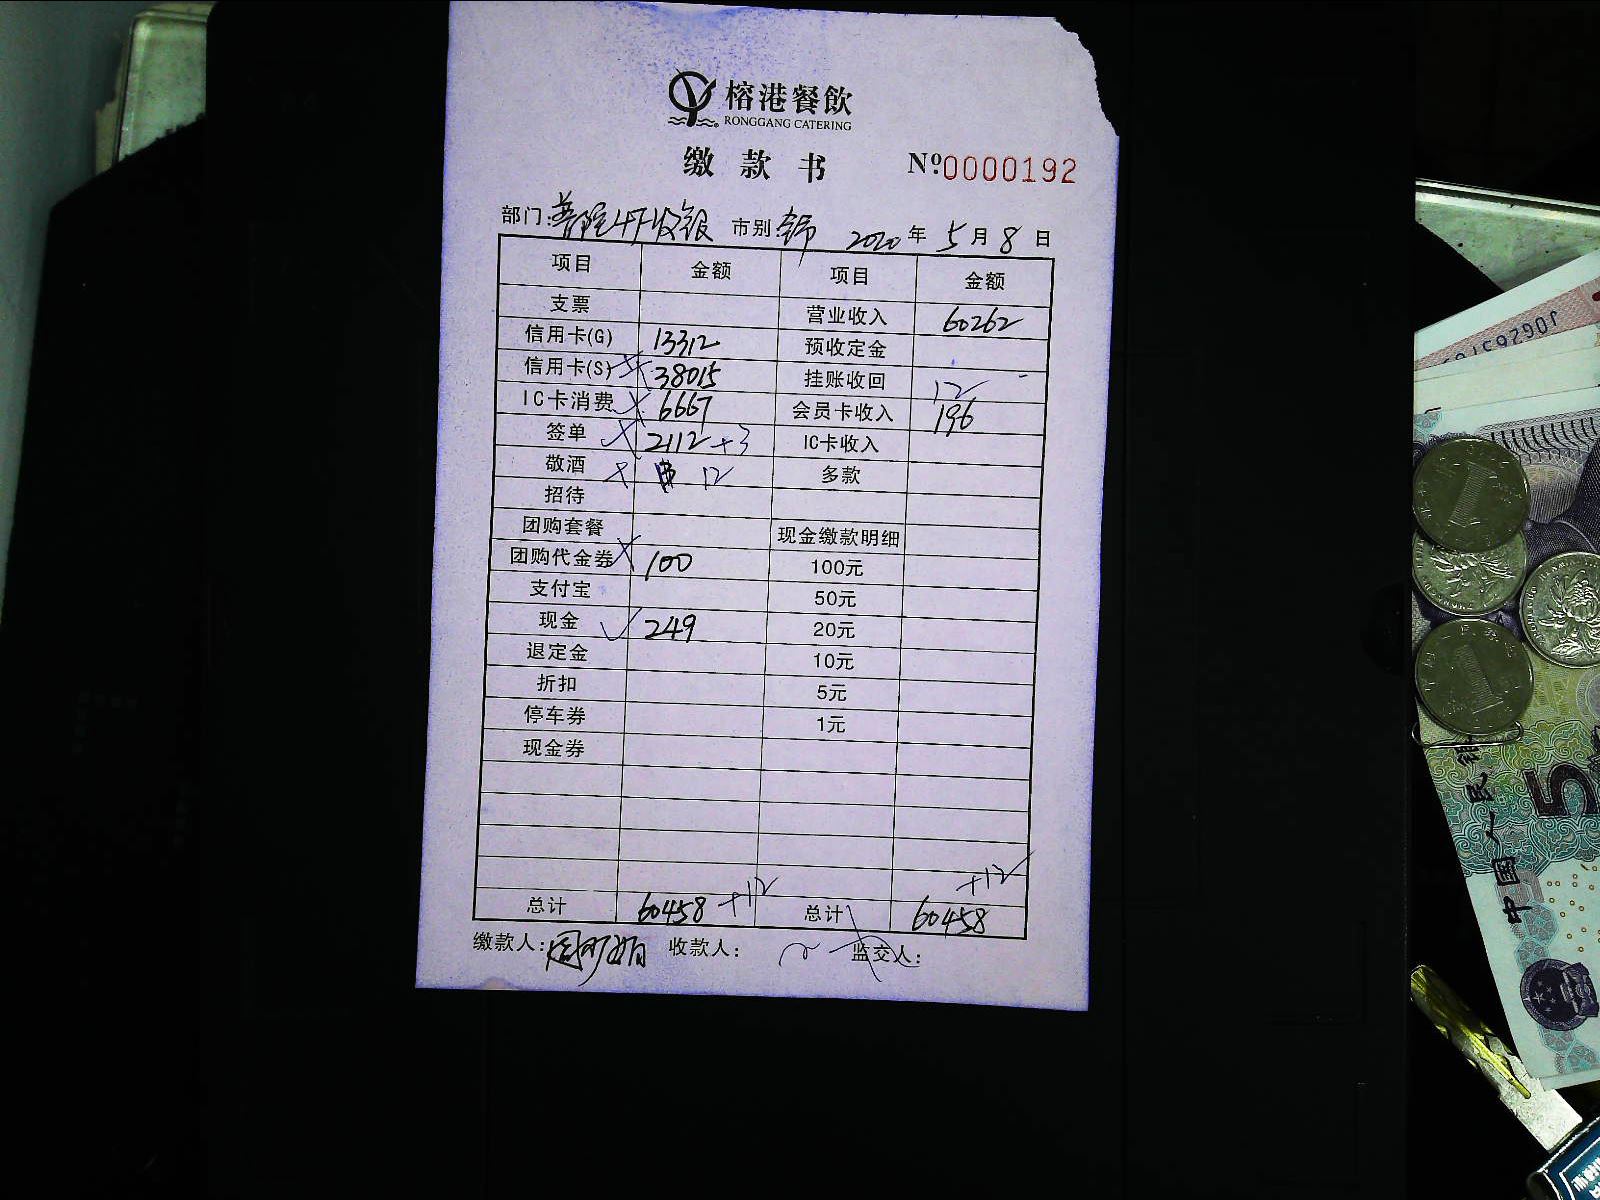 榕港餐飲
RONGGANG CATERING
缴款书 Nº0000192
部门: 市别: 2020年5月8日
项目 金额 项目 金额
支票 营业收入 60262
信用卡(G) 13312 预收定金
信用卡(S) 38015 挂账收回 12
IC卡消费 6667 会员卡收入 196
签单 2112+3 IC卡收入
敬酒 12 多款
招待
团购套餐 现金缴款明细
团购代金券 100 100元
支付宝 50元
现金 249 20元
退定金 10元
折扣 5元
停车券 1元
现金券
总计 60458 +12 总计 60458 +12
缴款人: 收款人: 监交人:
中国人民
5